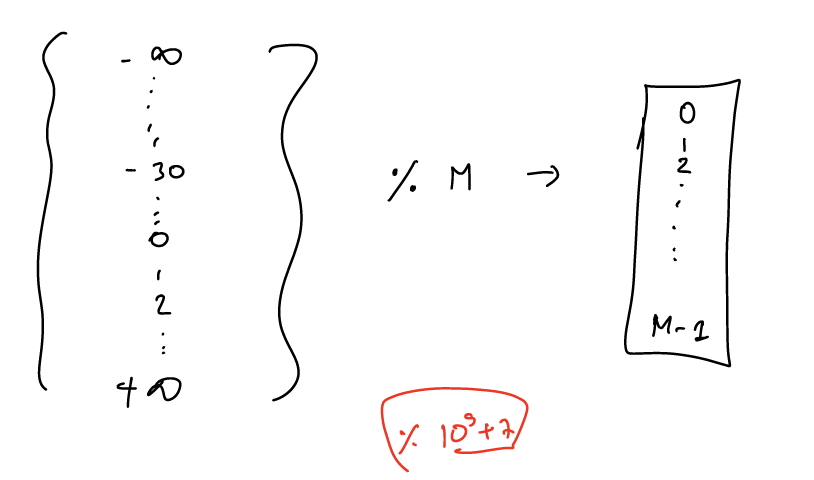 - ∞
- 30
0
1
2
+ ∞
% M →
0
1
2
M-1
% 10⁹+7